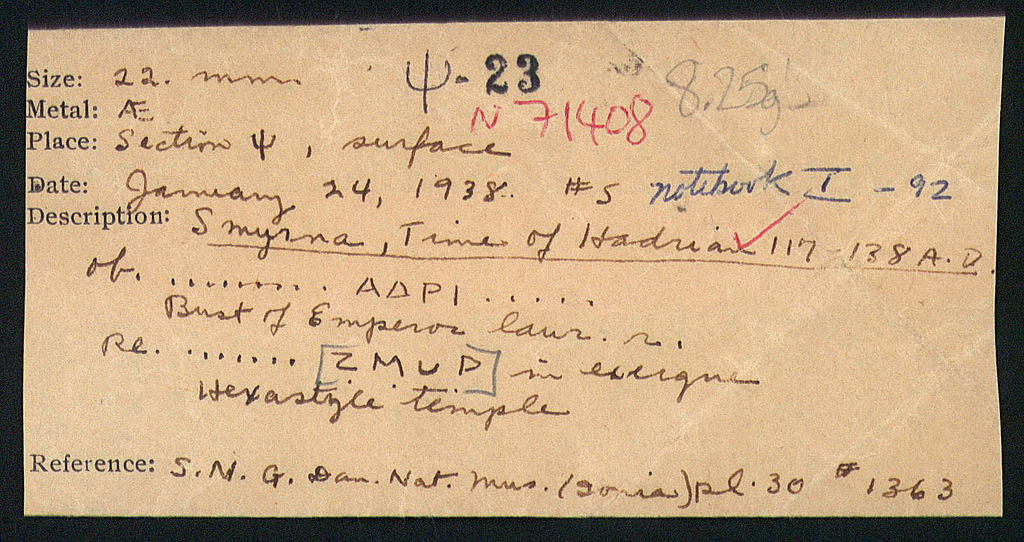 Ψ-23
Size: 22. mm. 8.25g
Metal: Æ N 71408
Place: Section Ψ, surface
Date: January 24, 1938. #5 notebook I - 92
Description: Smyrna, Time of Hadrian 117-138 A.D.
ob. ......... ΑΔΡΙ .....
Bust of Emperor laur. r.
Re. ....... [ΖΜυΡ] in exergue
Hexastyle temple
Reference: S.N.G. Dan. Nat. Mus. (Ionia) pl. 30 # 1363